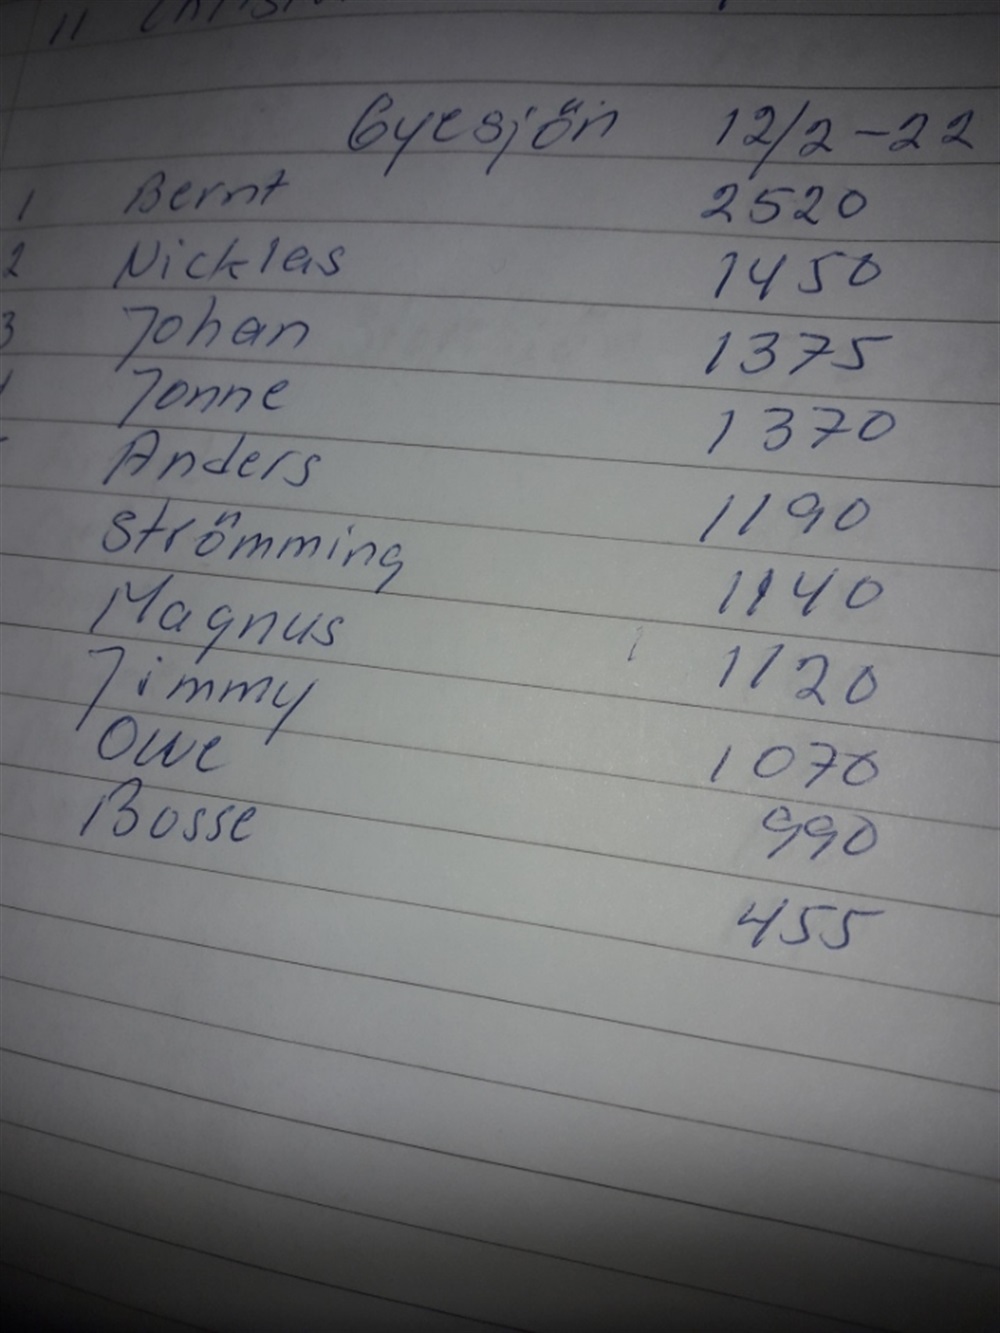 11
Gyesjön 12/2-22
1 Bernt 2520
2 Nicklas 1450
3 Johan 1375
Jonne 1370
Anders 1190
Strömming 1140
Magnus 1120
Jimmy 1070
Owe 990
Bosse 455